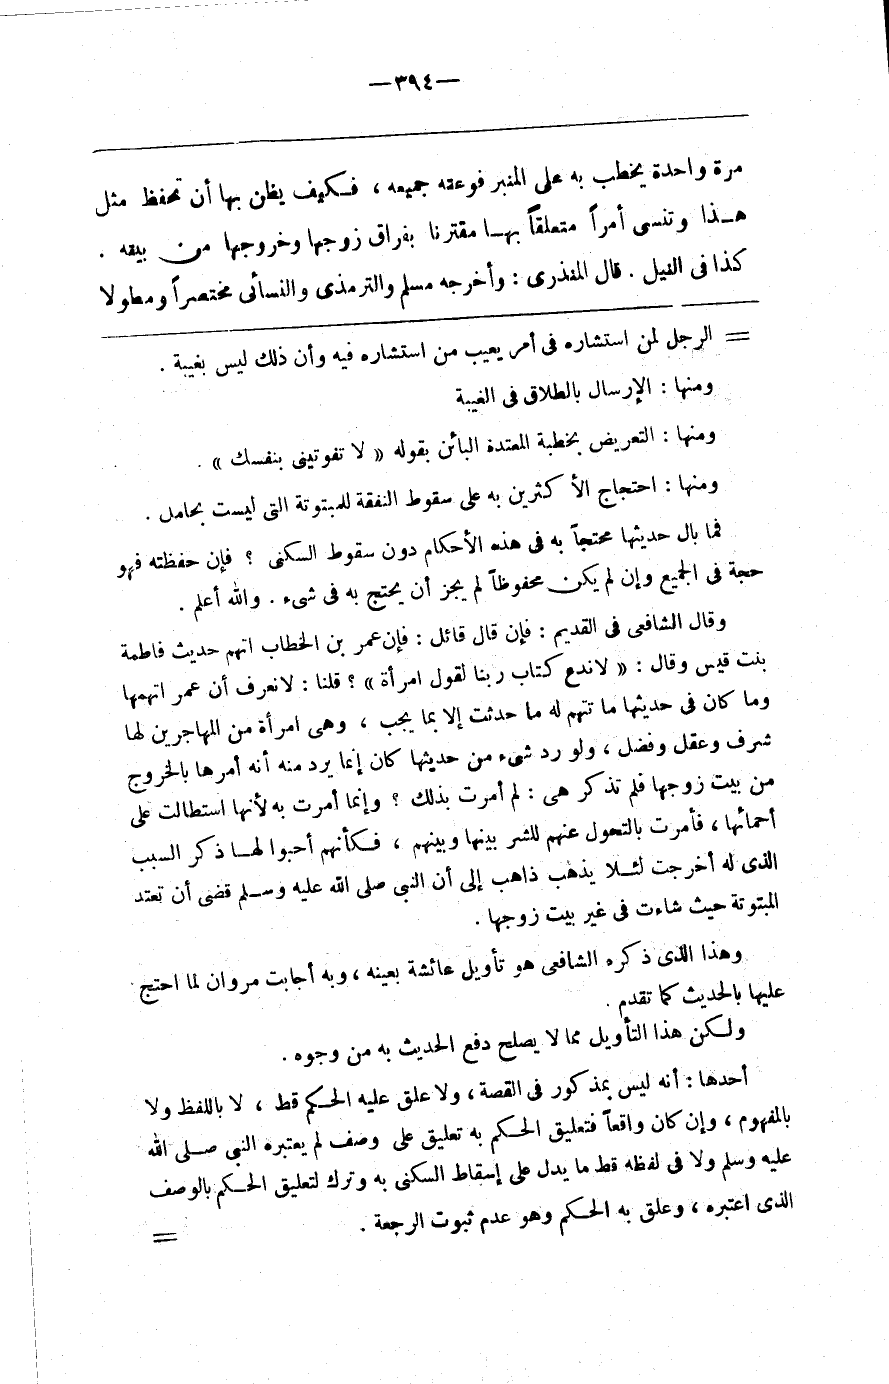 —٣٩٤—
مرة واحدة يخطب به على المنبر فوعته جميعه ، فكيف يظن بها أن تحفظ مثل
هذا وتنسى أمراً متعلقاً بها مقترنا بفراق زوجها وخروجها من بيته .
كذا فى النيل . قال المنذرى : وأخرجه مسلم والترمذى والنسائى مختصراً ومطولا
= الرجل لمن استشاره فى أمر يعيب من استشاره فيه وأن ذلك ليس بغيبة .
ومنها : الإرسال بالطلاق فى الغيبة
ومنها : التعريض بخطبة المعتدة البائن بقوله « لا تفوتينى بنفسك » .
ومنها : احتجاج الأكثرين به على سقوط النفقة للمبتوتة التى ليست بحامل .
فما بال حديثها محتجاً به فى هذه الأحكام دون سقوط السكنى ؟ فإن حفظته فهو
حجة فى الجميع وإن لم يكن محفوظاً لم يجز أن يحتج به فى شىء . والله أعلم .
وقال الشافعى فى القديم : فإن قال قائل : فإن عمر بن الخطاب اتهم حديث فاطمة
بنت قيس وقال : « لاندع كتاب ربنا لقول امرأة » ؟ قلنا : لانعرف أن عمر اتهمها
وما كان فى حديثها ما تتهم له ما حدثت إلا بما يجب ، وهى امرأة من المهاجرين لها
شرف وعقل وفضل ، ولو رد شىء من حديثها كان إنما يرد منه أنه أمرها بالخروج
من بيت زوجها فلم تذكر هى : لم أمرت بذلك ؟ وإنما أمرت به لأنها استطالت على
أحمائها ، فأمرت بالتحول عنهم للشر بينها وبينهم ، فكأنهم أحبوا لها ذكر السبب
الذى له أخرجت لئلا يذهب ذاهب إلى أن النبى صلى الله عليه وسلم قضى أن تعتد
المبتوتة حيث شاءت فى غير بيت زوجها .
وهذا الذى ذكره الشافعى هو تأويل عائشة بعينه ، وبه أجابت مروان لما احتج
عليها بالحديث كما تقدم .
ولكن هذا التأويل مما لا يصلح دفع الحديث به من وجوه .
أحدها : أنه ليس بمذكور فى القصة ، ولا علق عليه الحكم قط ، لا باللفظ ولا
بالمفهوم ، وإن كان واقعاً فتعليق الحكم به تعليق على وصف لم يعتبره النبى صلى الله
عليه وسلم ولا فى لفظه قط ما يدل على إسقاط السكنى به وترك لتعليق الحكم بالوصف
الذى اعتبره ، وعلق به الحكم وهو عدم ثبوت الرجعة .
=